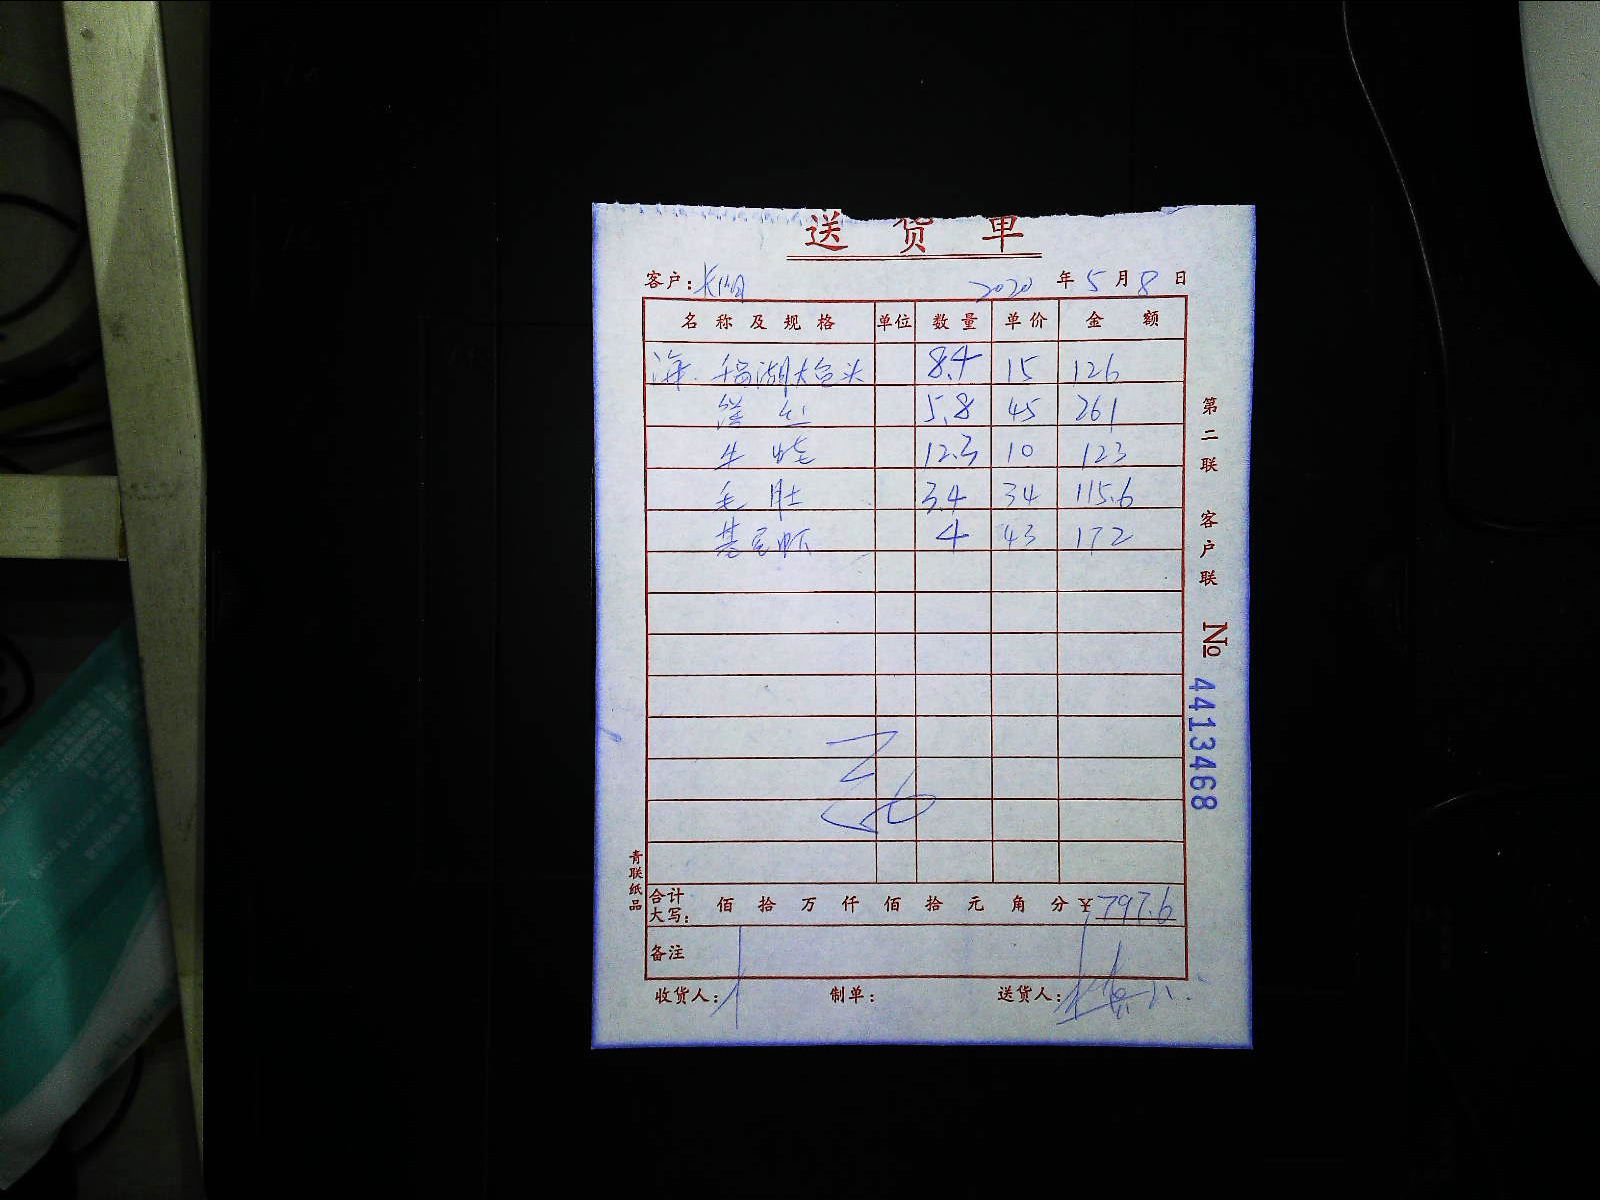 送货单
客户: 2020年5月8日
名称及规格 单位 数量 单价 金额
湖大 8.4 15 126
5.8 45 261
牛 12.3 10 123
毛肚 3.4 34 115.6
基尾虾 4 43 172
合计大写: 佰 拾 万 仟 佰 拾 元 角 分 ¥797.6
备注
收货人: 制单: 送货人:
第二联 客户联 № 4413468
青联纸品